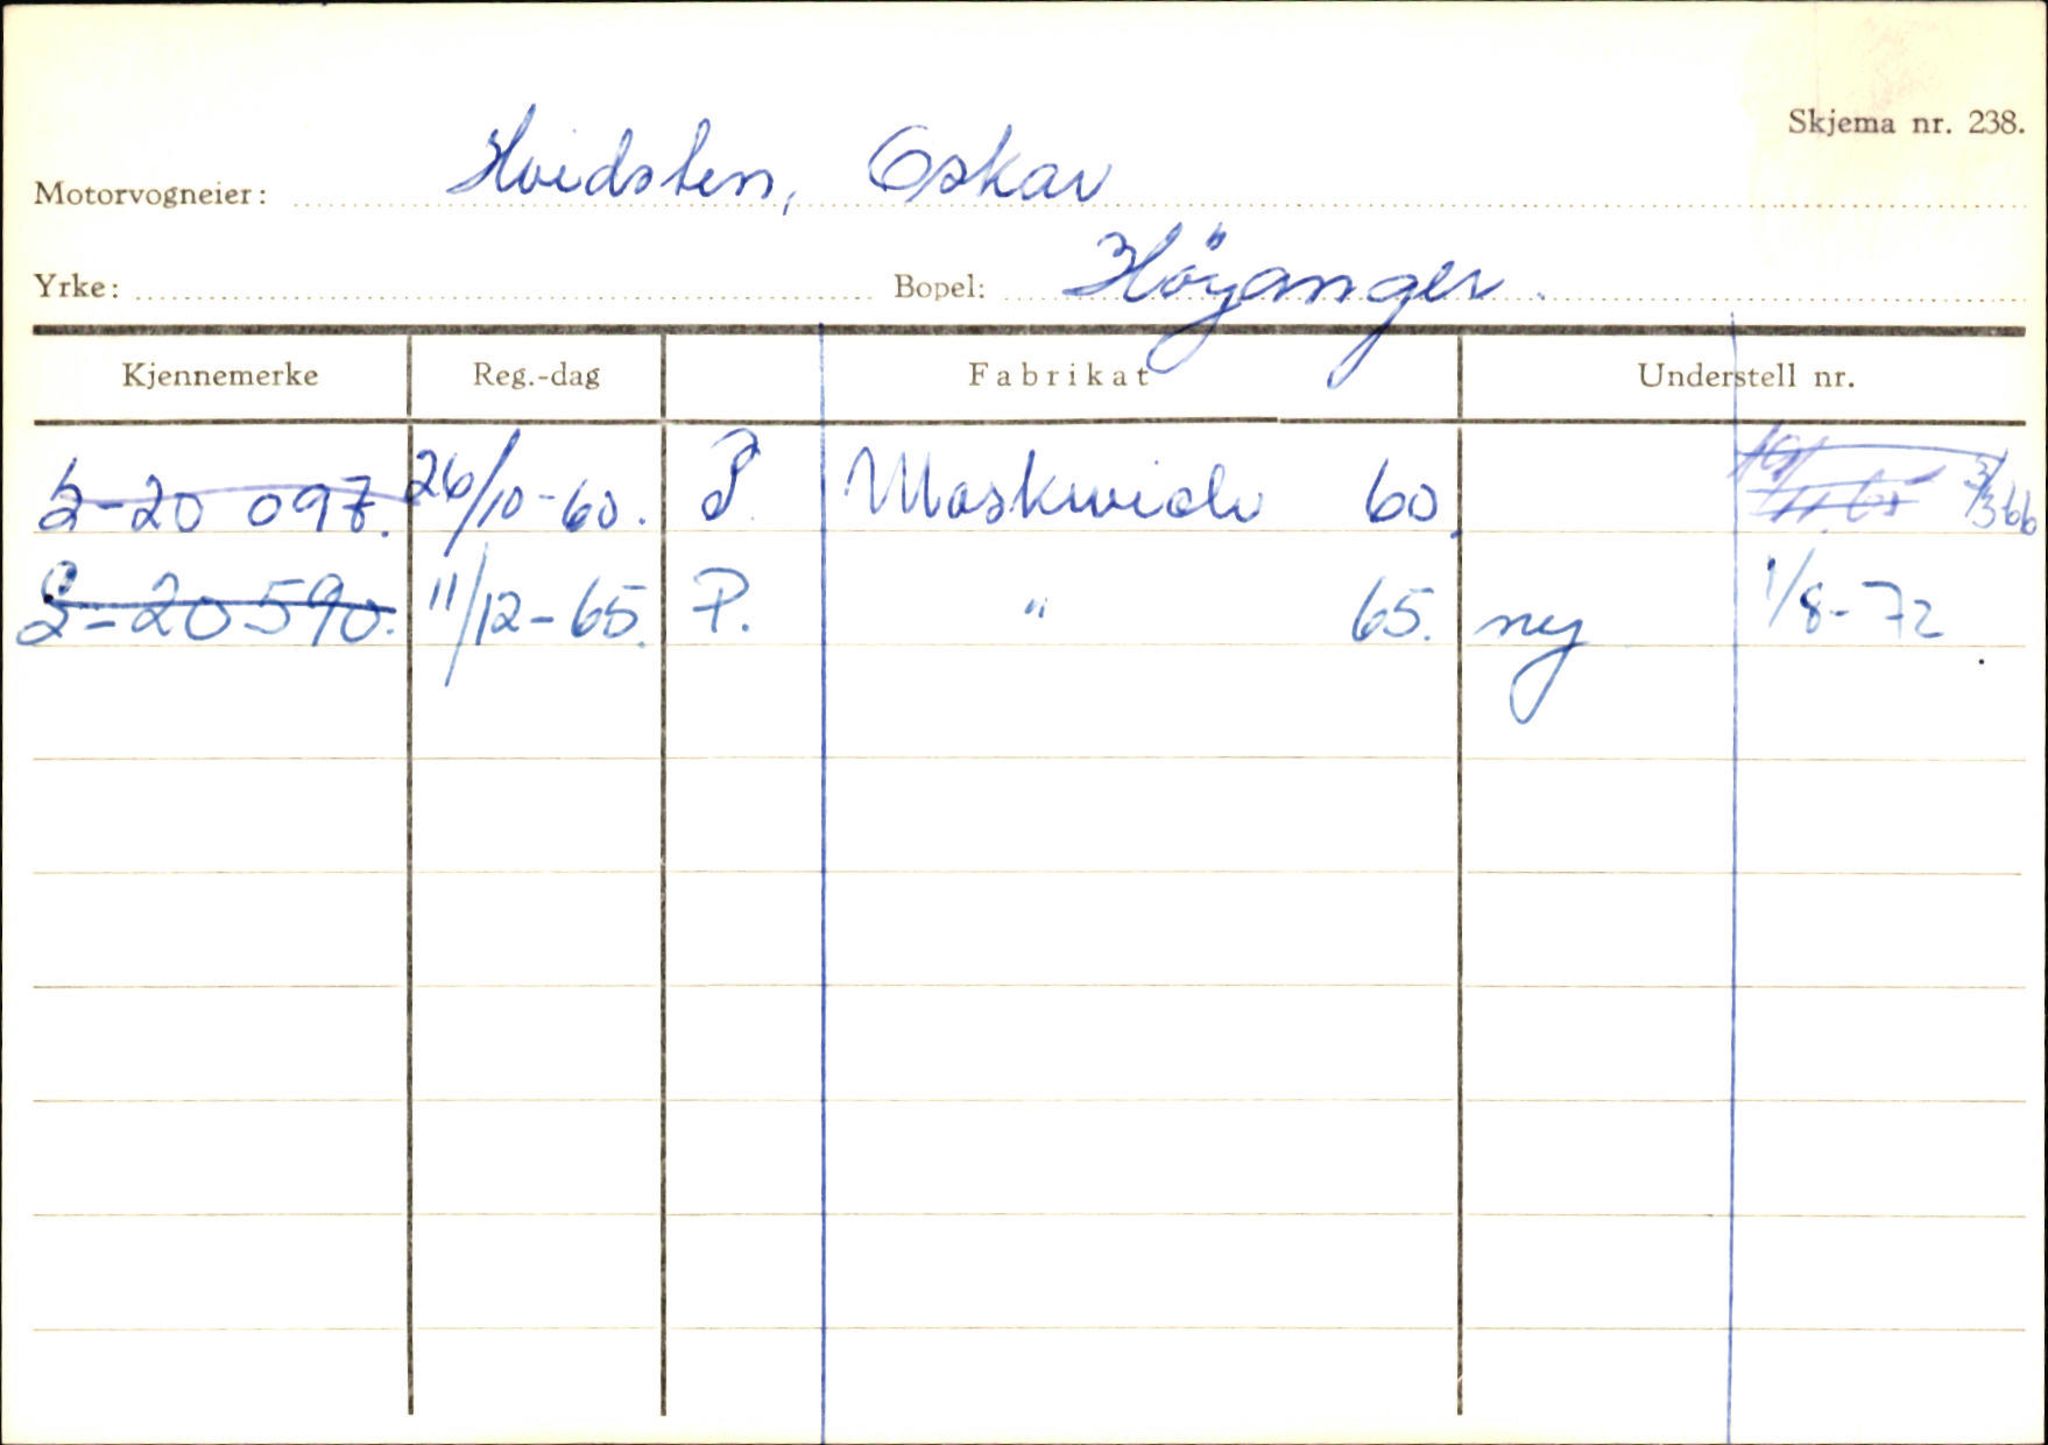 Skjema nr. 238.
Motorvogneier: Hvidsten, Oskar
Yrke: Bopel: Höyanger.
Kjennemerke Reg.-dag Fabrikat Understell nr.
S-20 097. 26/10-60. P. Moskwich 60. 3/3 66
S-20590. 11/12-65. P. " 65. ny 1/8-72